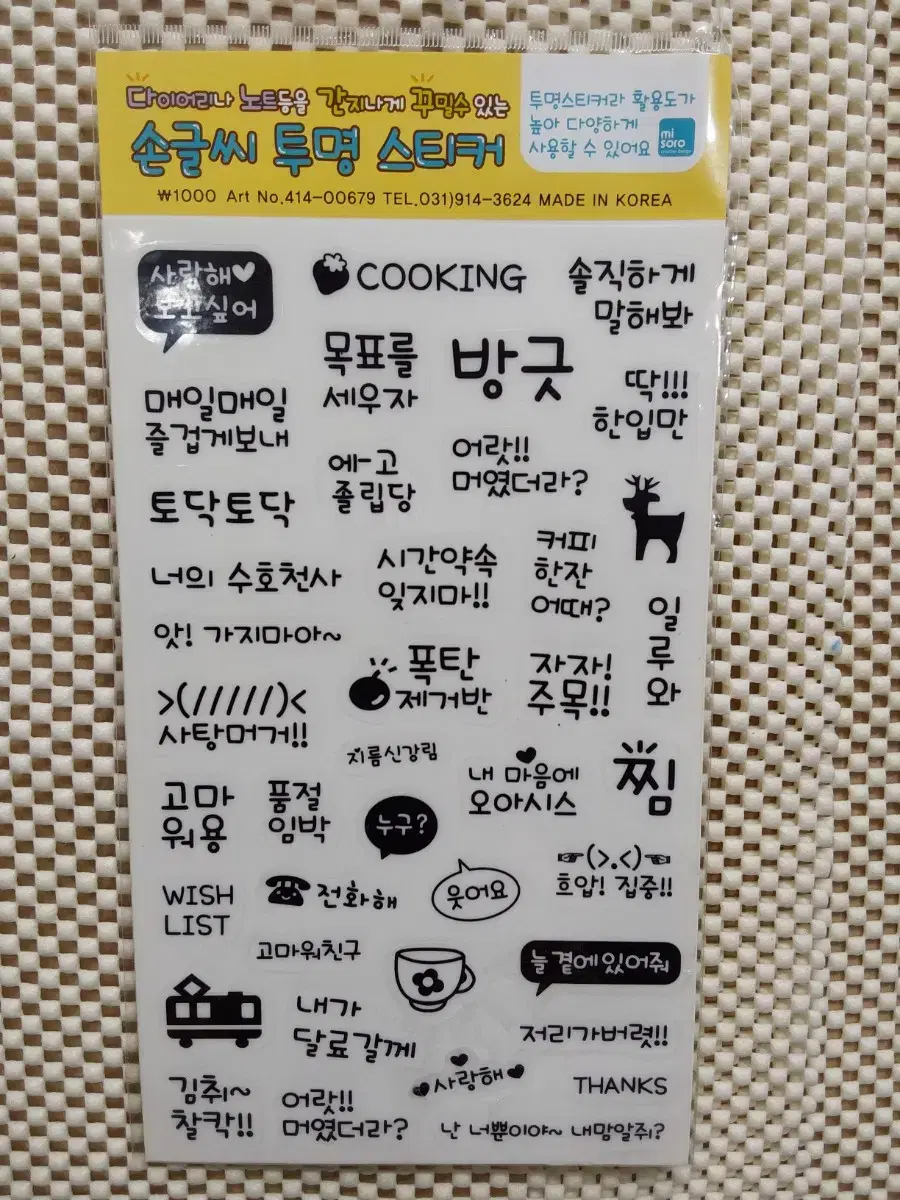 다이어리나 노트등을 간지나게 꾸밀수 있는
손글씨 투명 스티커
투명스티커라 활용도가
높아 다양하게
사용할 수 있어요
mi
soro
₩1000 Art No.414-00679 TEL.031)914-3624 MADE IN KOREA
사랑해♥
보고싶어
COOKING
솔직하게
말해봐
목표를
세우자
방긋
딱!!!
한입만
매일매일
즐겁게보내
에-고
졸립당
어랏!!
머였더라?
토닥토닥
커피
한잔
어때?
너의 수호천사
시간약속
잊지마!!
일
루
와
앗! 가지마아~
폭탄
제거반
자자!
주목!!
>(/////)<
사탕머거!!
지름신강림
내 마음에
오아시스
찜
고마
워용
품절
임박
누구?
☞(>.<)☜
흐압! 집중!!
WISH
LIST
전화해
웃어요
고마워친구
늘 곁에 있어줘
내가
달료갈께
저리가버렷!!
사랑해
THANKS
김취~
찰칵!!
어랏!!
머였더라?
난 너뿐이야~ 내맘알쥐?